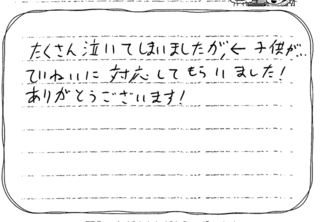 たくさん泣いてしまいましたが、← 子供が...
ていねいに対応してもらいました!
ありがとうございます!